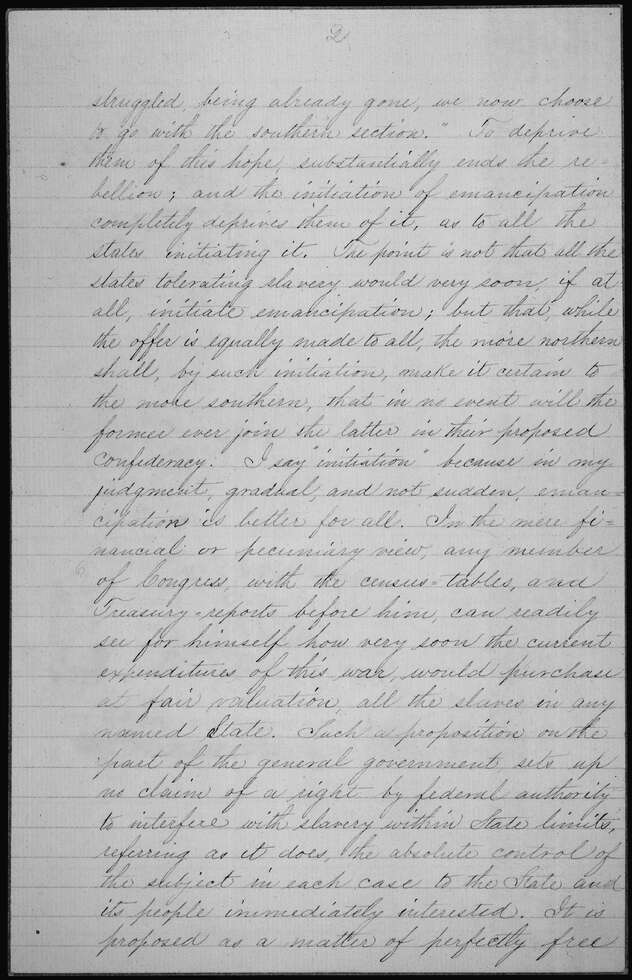 2
struggled, being already gone, we now choose
to go with the southern section." To deprive
them of this hope, substantially ends the re=
bellion; and the initiation of emancipation
completely deprives them of it, as to all the
states initiating it. The point is not that all the
states tolerating slavery would very soon, if at
all, initiate emancipation; but that, while
the offer is equally made to all, the more northern
shall, by such initiation, make it certain to
the more southern, that in no event will the
former ever join the latter in their proposed
Confederacy. I say "initiation" because in my
judgment, gradual, and not sudden, eman=
cipation is better for all. In the mere fi=
nancial or pecuniary view, any member
of Congress, with the census=tables, and
Treasury=reports before him, can readily
see for himself how very soon the current
expenditures of this war would purchase
at fair valuation, all the slaves in any
named State. Such a proposition on the
part of the general government, sets up
no claim of a right by federal authority
to interfere with slavery within State limits,
referring as it does, the absolute control of
the subject in each case to the State and
its people immediately interested. It is
proposed as a matter of perfectly free